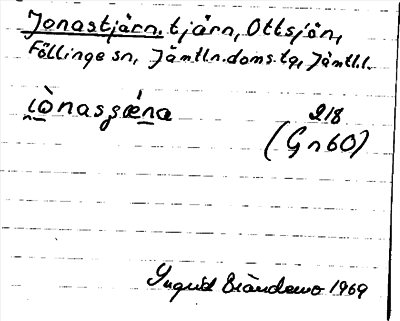 Jonastjärn, tjärn, Ottsjön,
Föllinge sn, Jämtln. doms. tg, Jämtl. l.
i̯ònasʒæ̀na 218
(Gn 60)
Ingrid Brändemo 1969